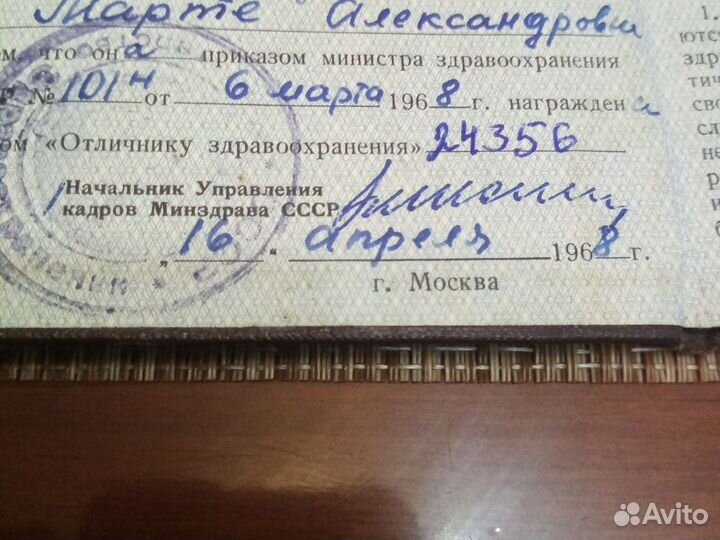 Марте Александровн
что она приказом министра здравоохранения
№ 101 н от 6 марта 1968 г. награждена
ом «Отличнику здравоохранения» 24356
Начальник Управления
кадров Минздрава СССР
„ 16 “ апреля 1968 г.
г. Москва
1.
ются
здр
тич
сво
сл
не
р
и
б
Avito